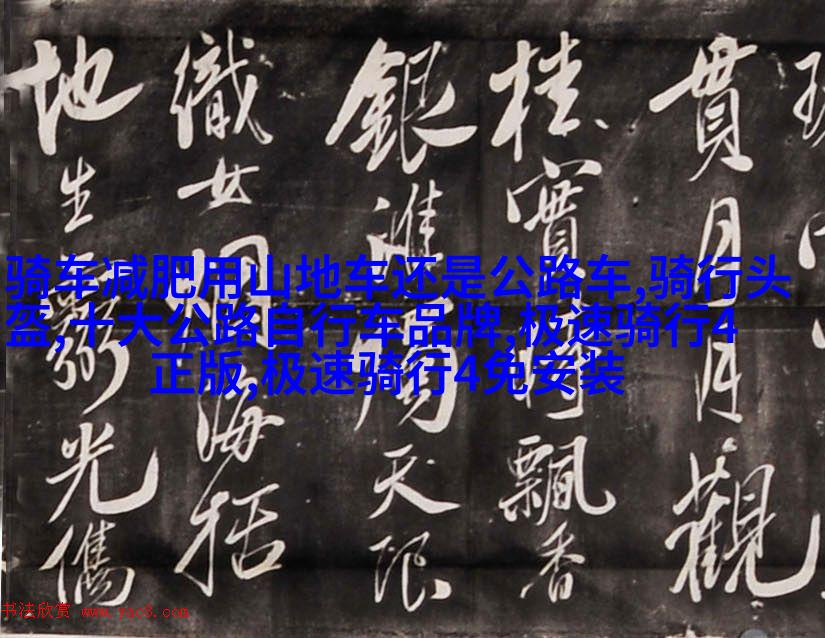 骑车减肥用山地车还是公路车,骑行头
盔,十大公路自行车品牌,极速骑行4
正版,极速骑行4免安装
貫月月觀
實飄香
銀漢周天限
織女烟海
地生光儁
书法欣赏 www.yac8.com